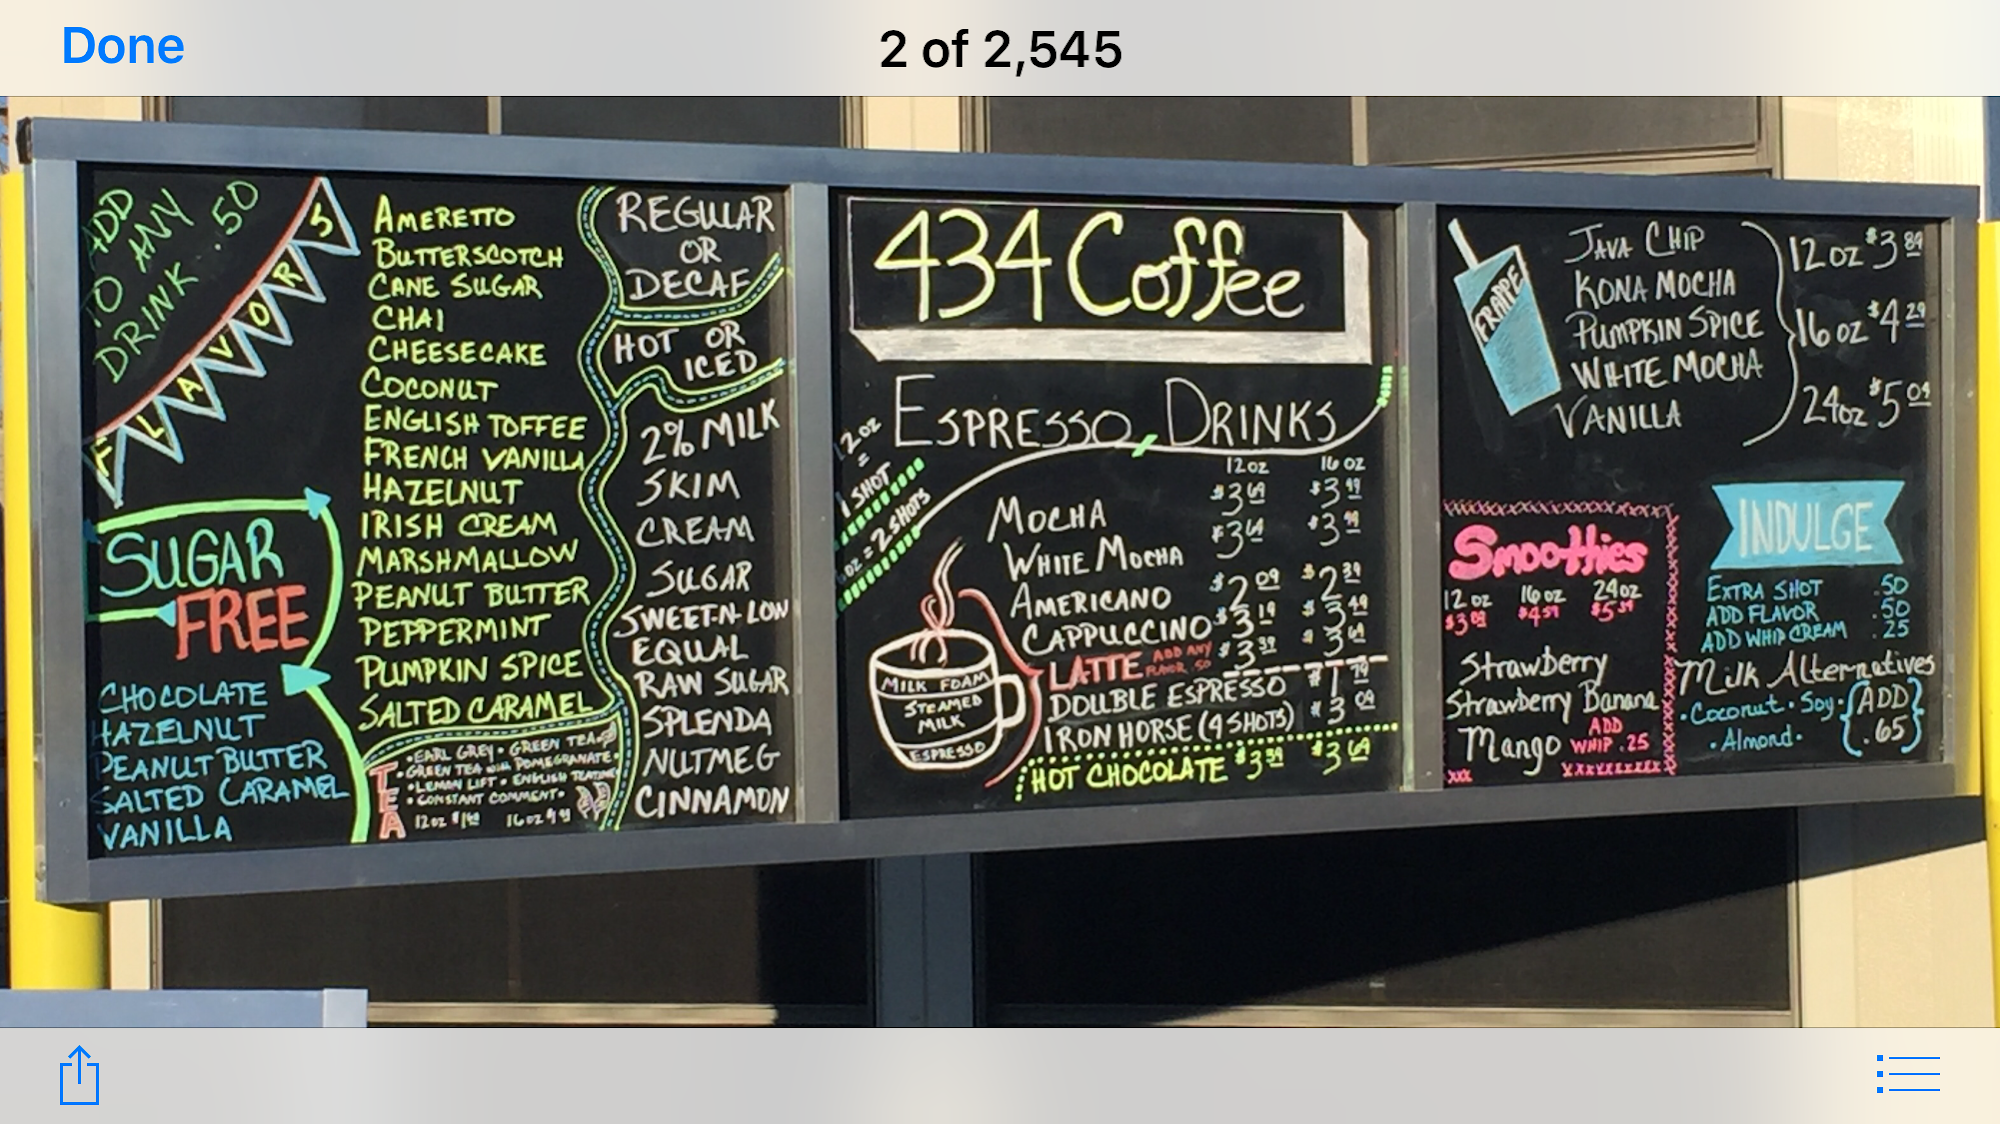 Done
2 of 2,545
ADD
TO ANY
DRINK .50
FLAVORS
AMERETTO
BUTTERSCOTCH
CANE SUGAR
CHAI
CHEESECAKE
COCONUT
ENGLISH TOFFEE
FRENCH VANILLA
HAZELNUT
IRISH CREAM
MARSHMALLOW
PEANUT BUTTER
PEPPERMINT
PUMPKIN SPICE
SALTED CARAMEL
SUGAR
FREE
CHOCOLATE
HAZELNUT
PEANUT BUTTER
SALTED CARAMEL
VANILLA
TEA
• EARL GREY • GREEN TEA •
• GREEN TEA with POMEGRANATE •
• LEMON LIFT • ENGLISH TEATIME
• CONSTANT COMMENT •
12oz 16oz
REGULAR
OR
DECAF
HOT OR
ICED
2% MILK
SKIM
CREAM
SUGAR
SWEET-N-LOW
EQUAL
RAW SUGAR
SPLENDA
NUTMEG
CINNAMON
434 Coffee
ESPRESSO DRINKS
12oz
=
1 SHOT
oz = 2 SHOTS
12oz 16oz
MOCHA $3.69 $3.99
WHITE MOCHA $3.69 $3.99
AMERICANO $2.09 $2.39
CAPPUCCINO $3.19 $3.49
LATTE ADD ANY FLAVOR .50 $3.39 $3.69
DOUBLE ESPRESSO $1.79
IRON HORSE (4 SHOTS) $3.09
HOT CHOCOLATE $3.39 $3.69
MILK FOAM
STEAMED
MILK
ESPRESSO
FRAPPE
JAVA CHIP
KONA MOCHA
PUMPKIN SPICE
WHITE MOCHA
VANILLA
12oz $3.89
16oz $4.29
24oz $5.09
Smoothies
12oz 16oz 24oz
$3.89 $4.59 $5.39
Strawberry
Strawberry Banana
Mango
ADD
WHIP .25
INDULGE
EXTRA SHOT .50
ADD FLAVOR .50
ADD WHIP CREAM .25
Milk Alternatives
• Coconut • Soy •
• Almond •
{ADD
.65}